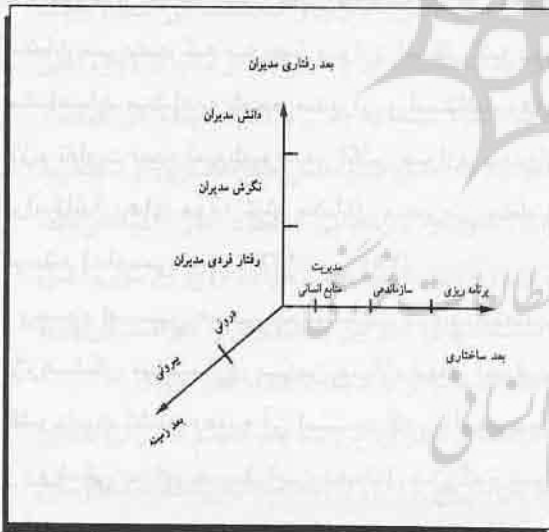 بعد رفتاری مدیران
دانش مدیران
نگرش مدیران
رفتار فردی مدیران
مدیریت
منابع انسانی
سازماندهی
برنامه ریزی
بعد ساختاری
درونی
بیرونی